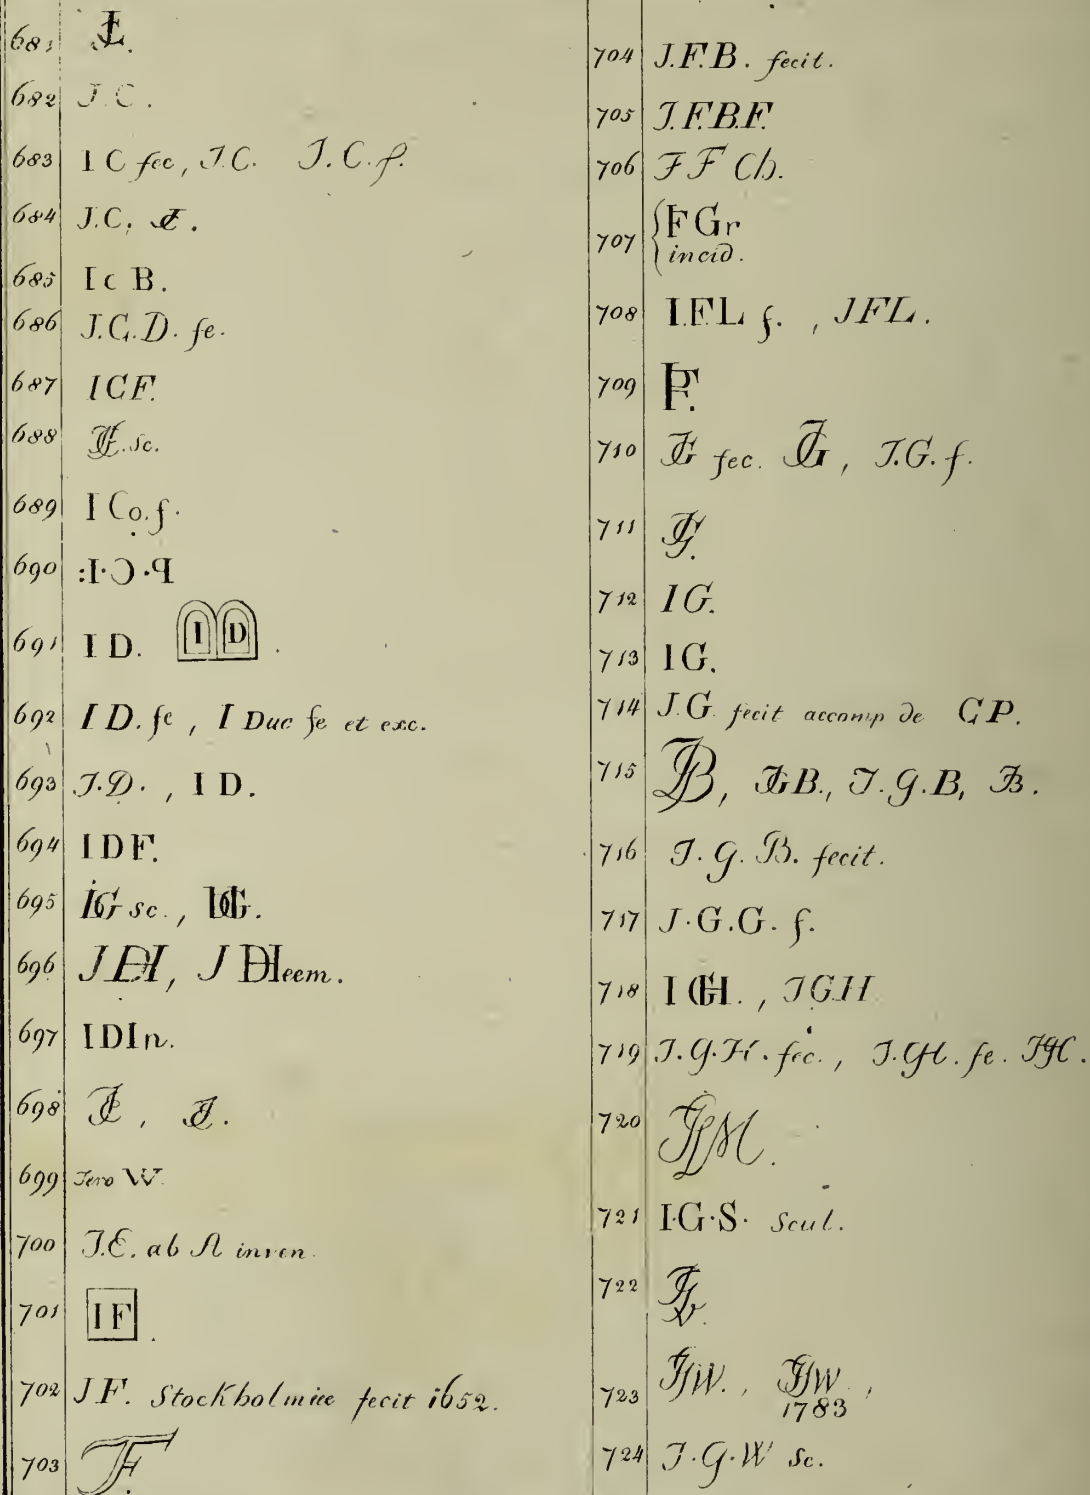 681
682 J.C.
683 I C fec, J.C. J.C.f.
684 J.C.
685 I c B.
686 J.C.D. fe.
687 ICF.
688 sc.
689 I Co. f.
690 :I·Ɔ·ꟼ
691 I D. I D.
692 I D. fe, I Duc fe et exc.
693 J.D., I D.
694 IDF.
695 IDG sc., IDG.
696 J DH, J DHeem.
697 IDIn.
698
699 Jero W.
700 J.E. ab A inven.
701 IF.
702 JF. Stockholmiæ fecit 1652.
703 JF.
704 J.F.B. fecit.
705 J.F.B.F.
706 F F Ch.
707 FGr
incid.
708 I.F.L f., JFL.
709
710 JG fec. JG, J.G.f.
711
712 IG.
713 IG.
714 J.G. fecit accomp de GP.
715 JGB., J.G.B,
716 J.G.B. fecit.
717 J.G.G. f.
718 I GH., JGH
719 J.G.H. fec., J.GH. fe. JGH.
720
721 I·G·S· Scul.
722
723 JGW., JGW.,
1783
724 J.G.W Sc.